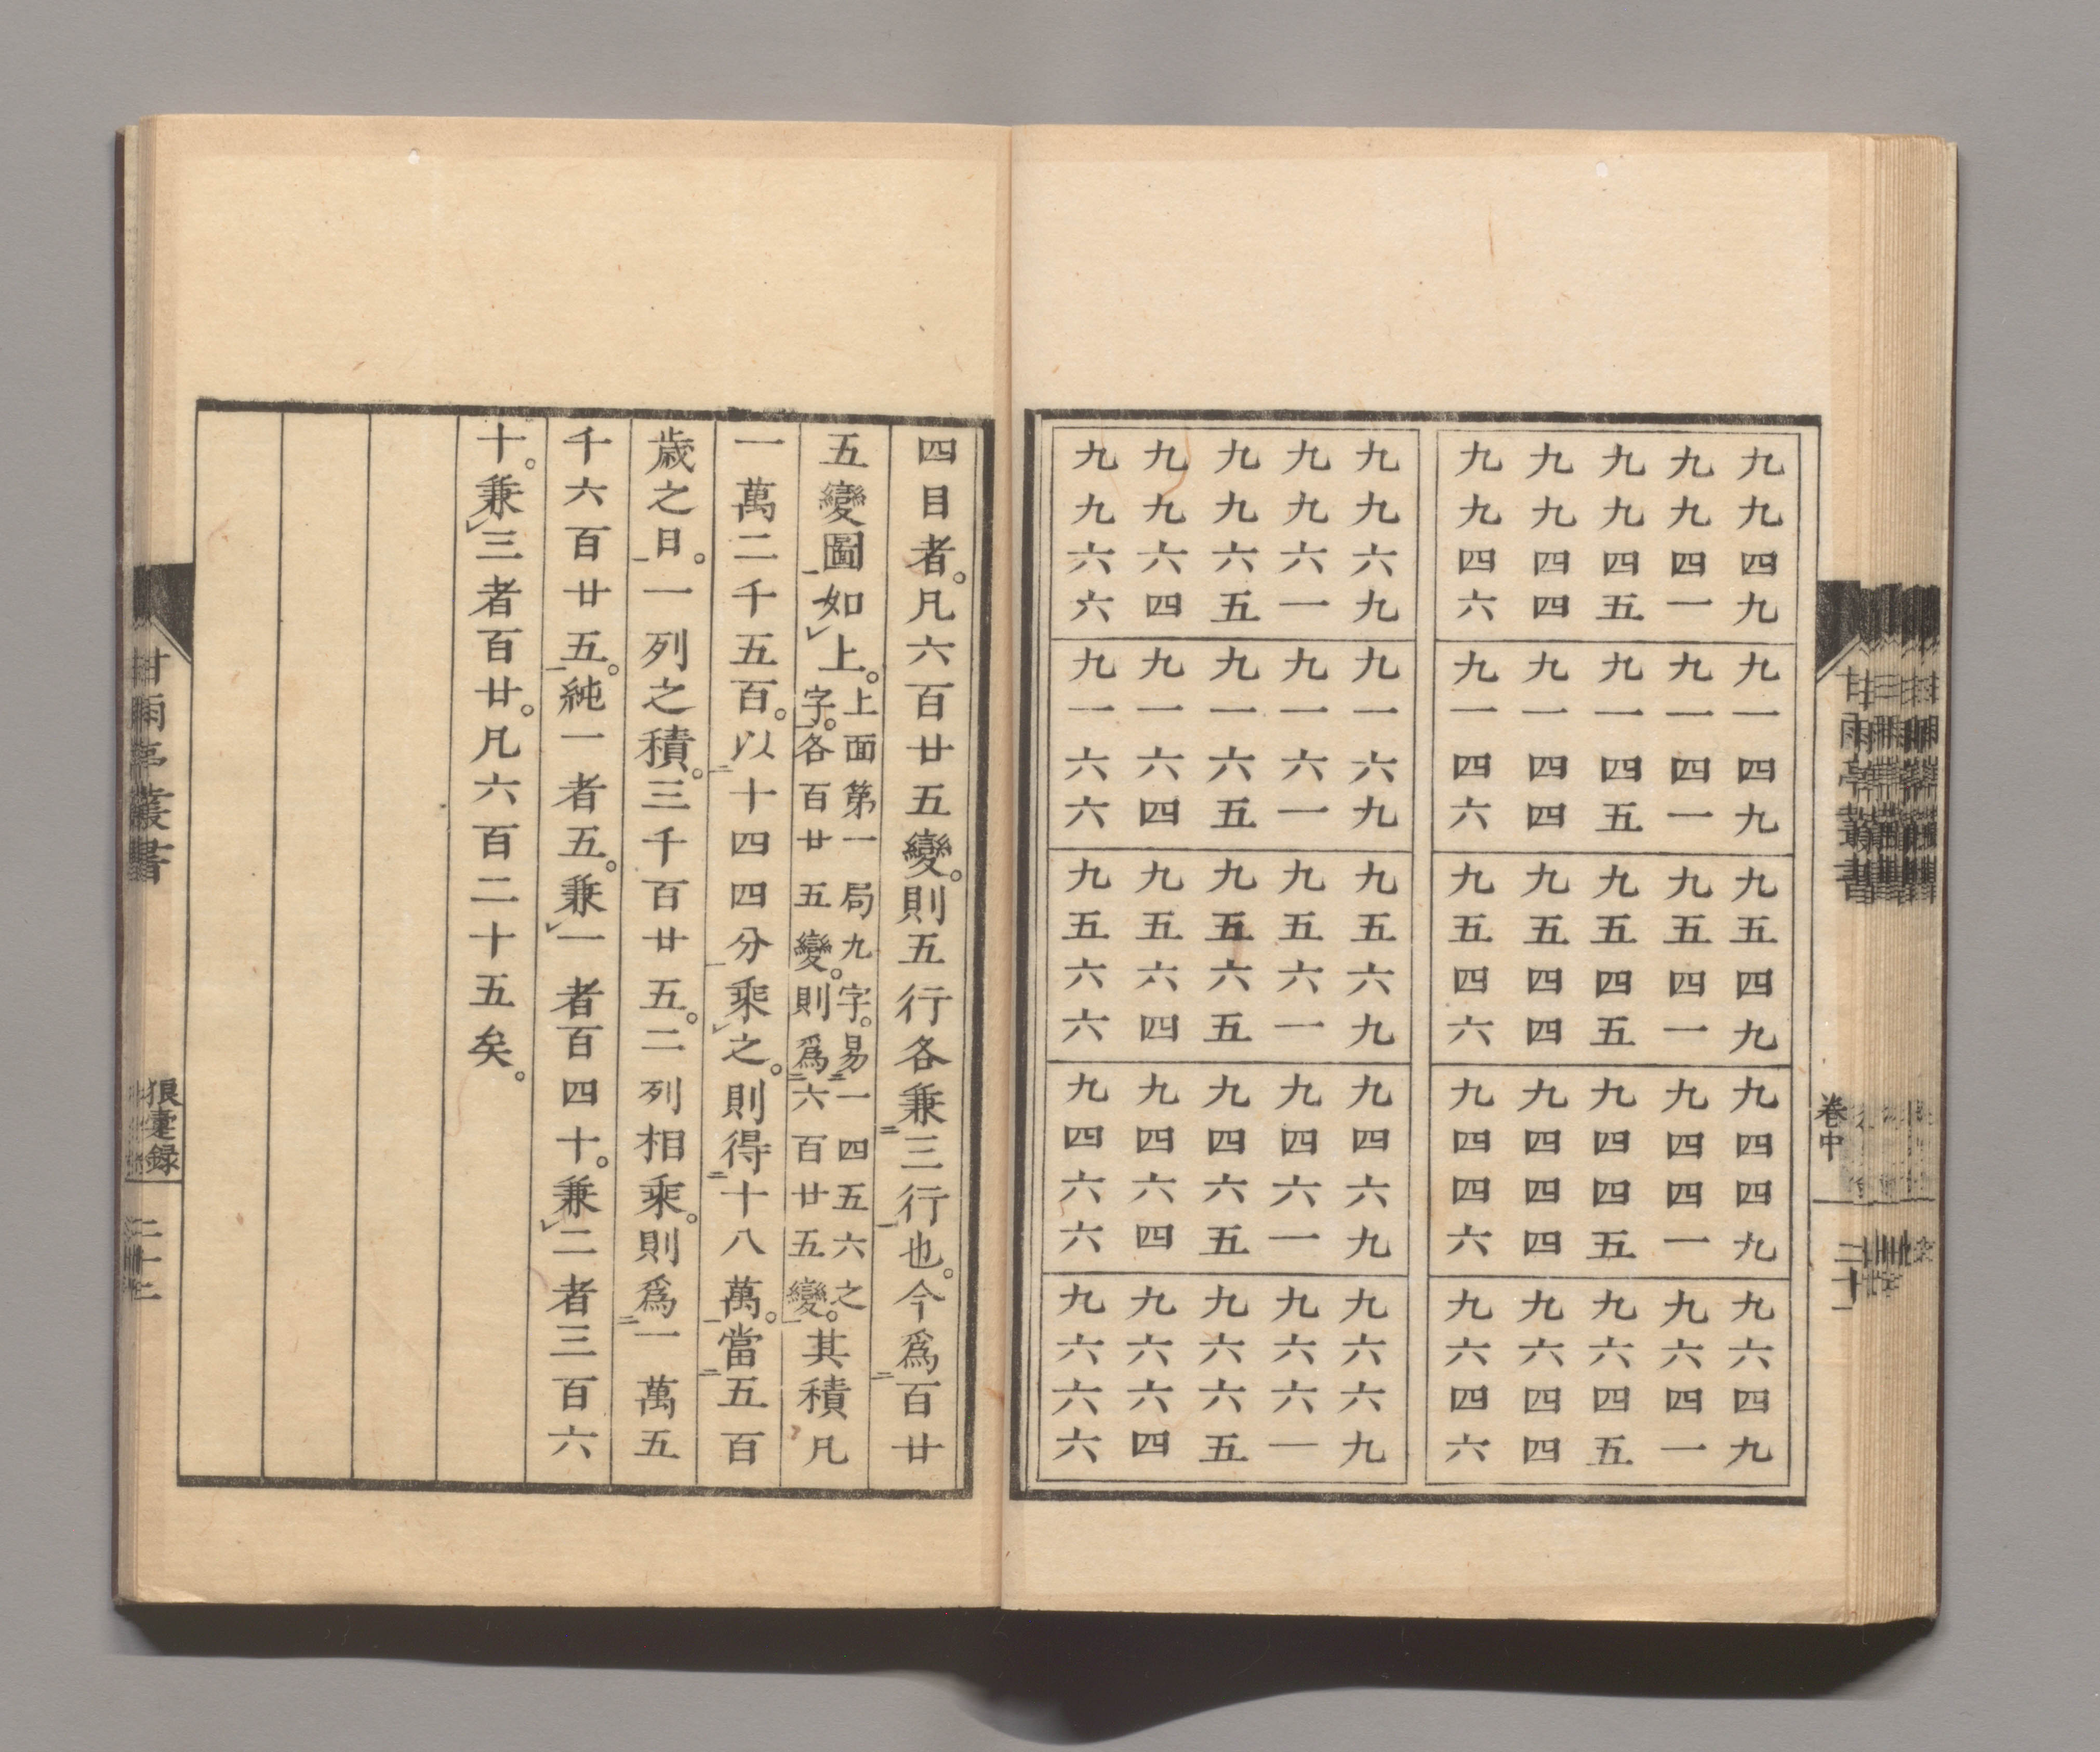 甘雨亭叢書
卷中
二十一
九九四九
九九四一
九九四五
九九四四
九九四六
九一四九
九一四一
九一四五
九一四四
九一四六
九五四九
九五四一
九五四五
九五四四
九五四六
九四四九
九四四一
九四四五
九四四四
九四四六
九六四九
九六四一
九六四五
九六四四
九六四六
九九六九
九九六一
九九六五
九九六四
九九六六
九一六九
九一六一
九一六五
九一六四
九一六六
九五六九
九五六一
九五六五
九五六四
九五六六
九四六九
九四六一
九四六五
九四六四
九四六六
九六六九
九六六一
九六六五
九六六四
九六六六
四目者。凡六百廿五變。則五行各兼二三行一也。今爲二百廿
五變圖一如レ上。上面第一局九字。易二一四五六之字一。各百廿五變。則爲二六百廿五變一。其積凡
一萬二千五百。以二十四四分一乘レ之。則得二十八萬一。當二五百
歲之日一。一列之積。三千百廿五。二列相乘。則爲二一萬五
千六百廿五一。純一者五。兼レ一者百四十。兼レ二者三百六
十。兼レ三者百廿。凡六百二十五矣。
甘雨亭叢書
狼疐録
二十二